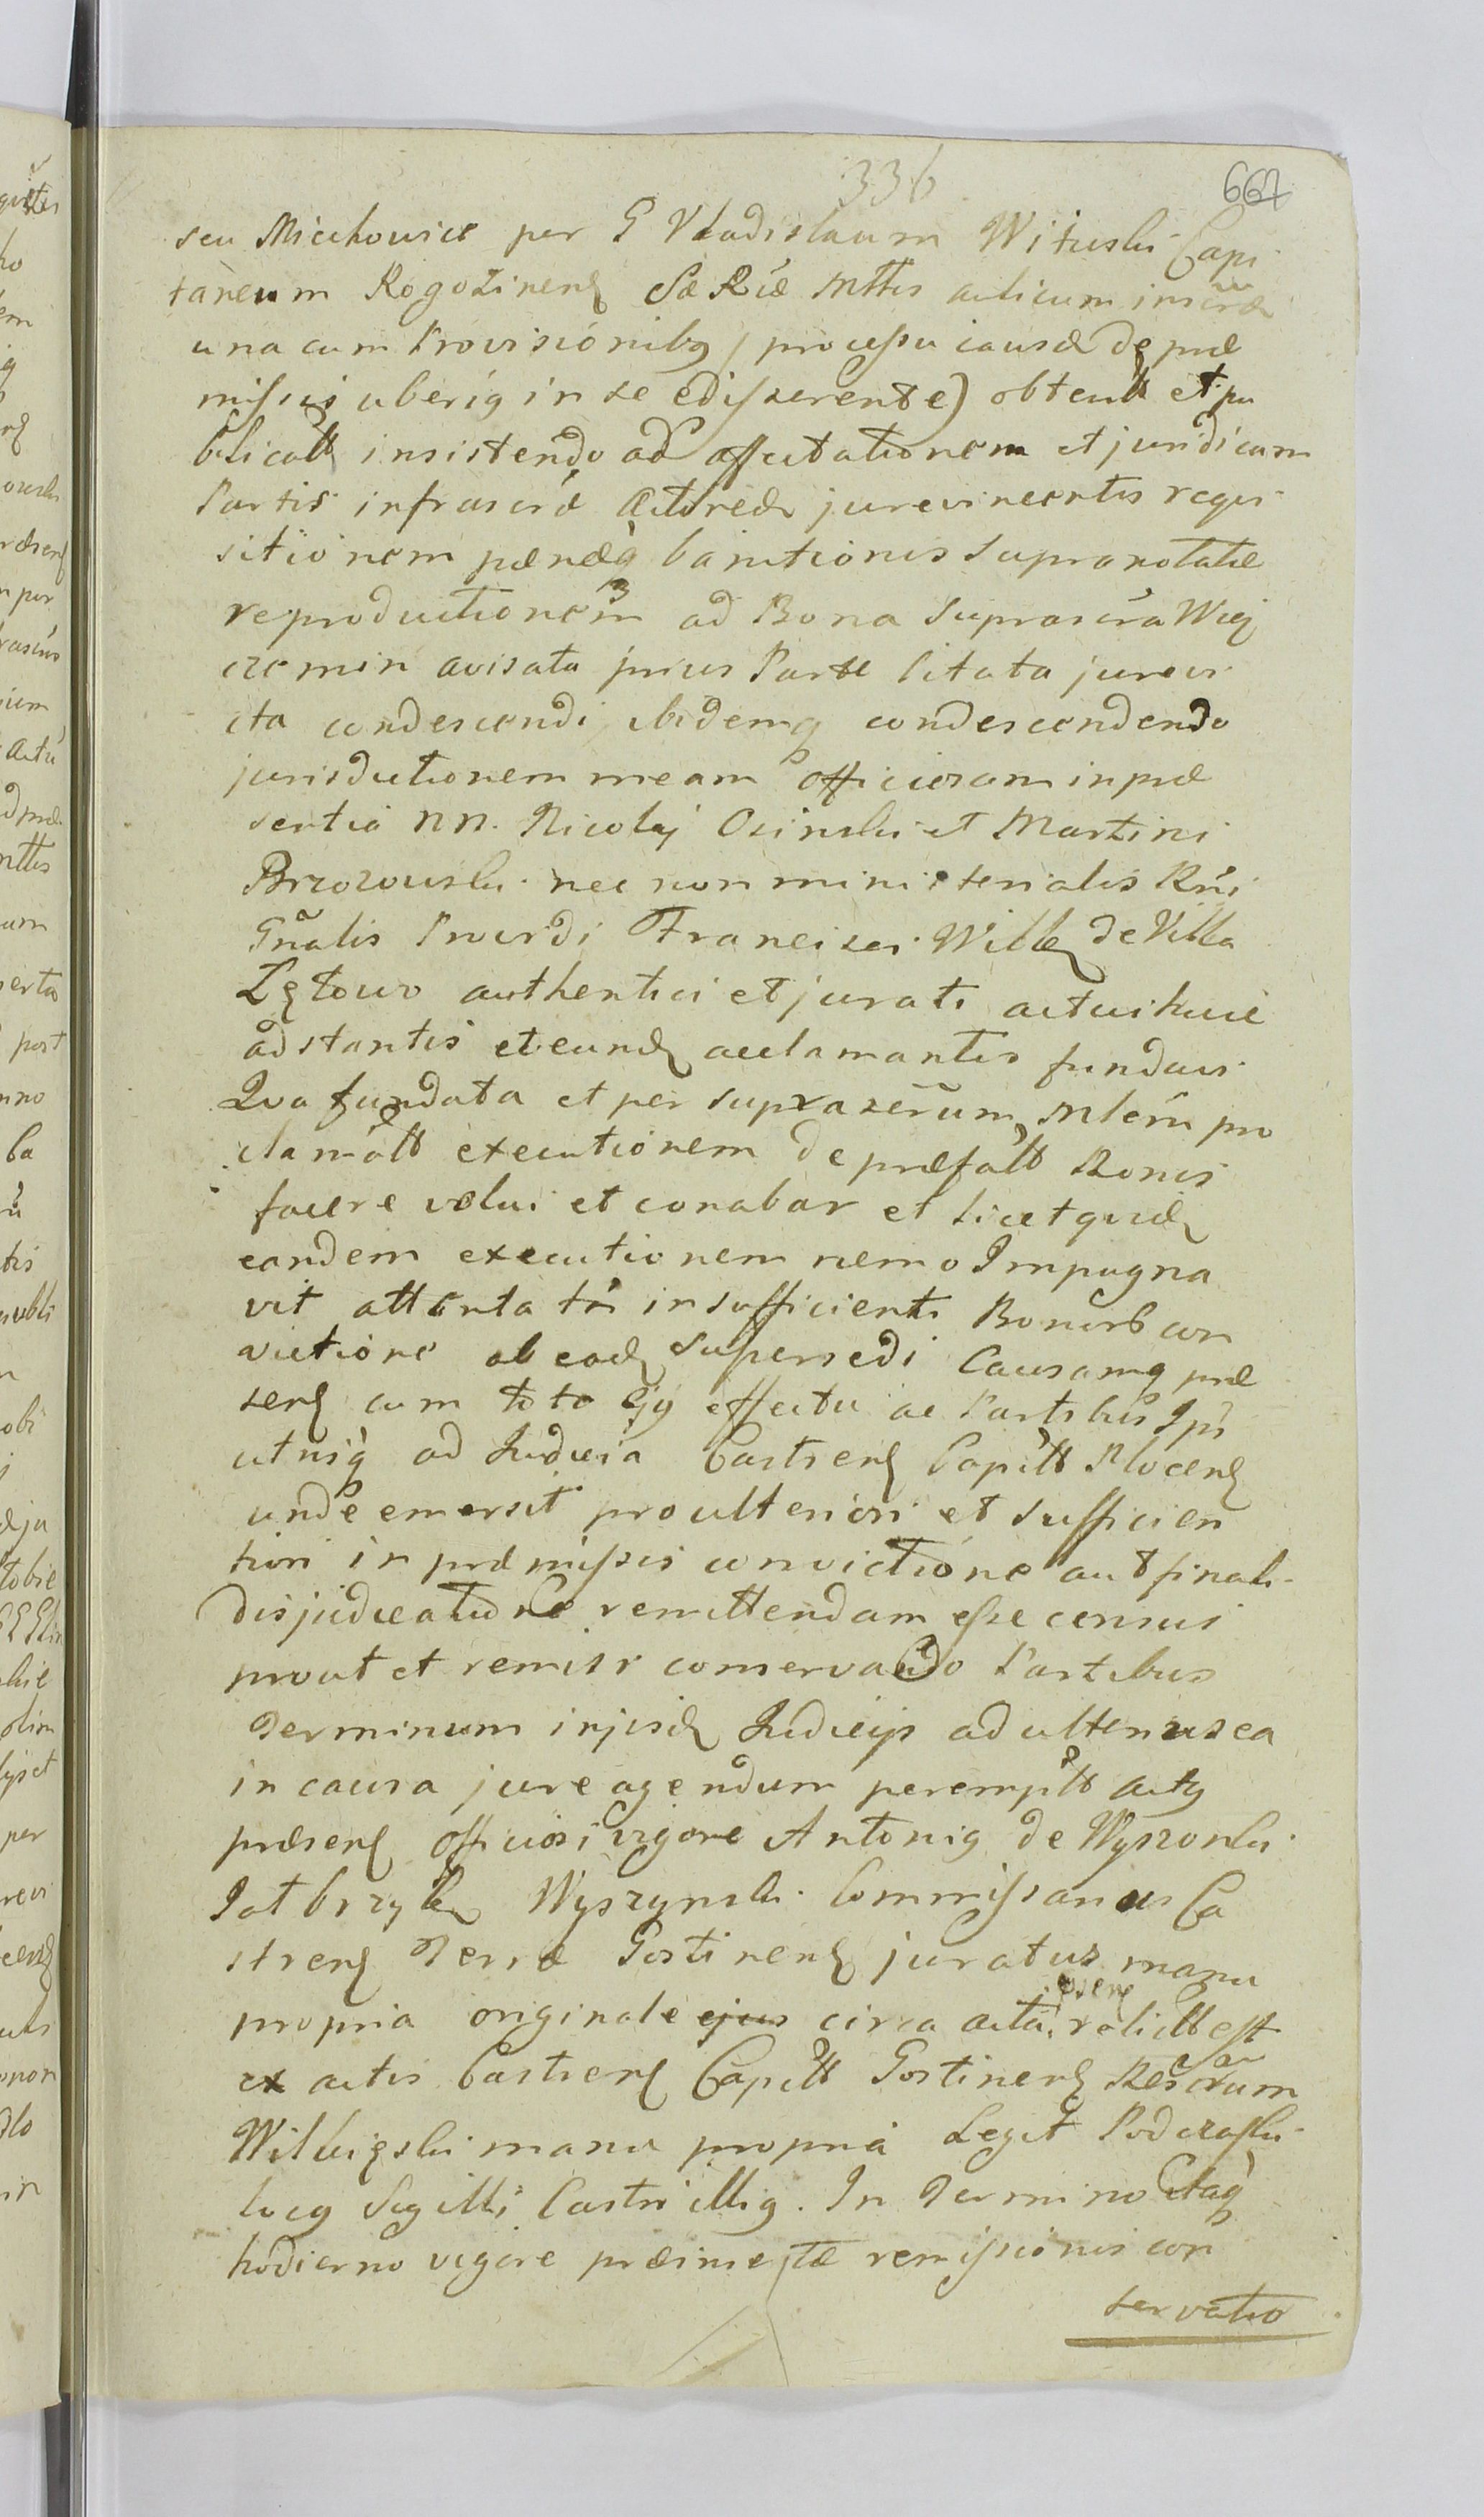 336
667
seu Miechowice per G Vladislaum Wituski Capi
taneum Rogozinens Sæ Ræ Mttis aulicum inscræ
una cum Provisionibq (processu causæ de præ
missis uberiq in se edisserente) obtent et pu
blicatt insistendo ad affectationem et juridicam
Partis infrascræ Actoreæ jurevincentis requi
sitionem pænæq banitionis supranotatæ
reproductionem ad Bona suprascra Wię
czemin avisata prius Parte Citata jurevi
cta condescendi, ibidemq condescendendo
jurisdictionem meam officiosam in præ
sentia NN. Nicolaj Osinski et Martini
Brzozowski nec non ministerialis Rni
Gñalis Providi Francisci Wilk de Villa
Zętowo authentici et jurati actui huic
adstantis et eund acclamantis fundavi
Qva fundata et per suprascrum Mlem pro
clamatt executionem de præfatt Bonis
facere volui et conabar et licet quid
eandem executionem nemo Impugna
vit attenta tn insufficienti Bonorb con
victione ab ead supersedi Causamq præ
sens cum toto ejq effectu ac Partibus Ips
utrisq ad Judicia Castrens Capitt Plocens
unde emersit pro ulteriori et sufficien
tiori in præmissis convictione aut finali
disjudicatione remittendam esse censui
prout et remisi conservando Partibus
Terminum in jisd Judicijs ad ulterius ea
in causa jure agendum perempitt actq
præsens officiosi vigore Antoniq de Wyszonki
Patbrzyk Wyszynski Commissarius Ca
strens Terræ Gostinens juratus manu
propria originale ejus circa acta præsens relictt est
ex actis Castrens Capitt Gostinens Rescrum
Wilbięski manu propria Legit Podczaski
locq Sigilli Castri illiq. In Termino Itaq
hodierno vigore præinsertæ remissionis con
servatio